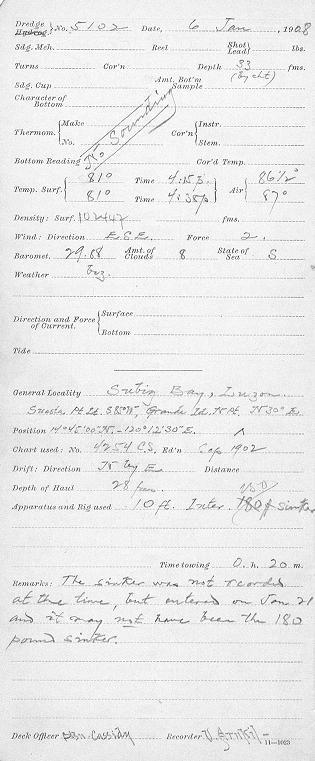 Dredge No. 5102 Date, 6 Jan, 1908
Hydrog.
Sdg. Mch. Reel Shot Lead lbs.
Turns Cor'n Depth 33 fms.
(By cht)
Sdg. Cup Amt. Bot'm Sample
Character of Bottom
No Sounding
Thermom. Make No. Cor'n Instr. Stem.
Bottom Reading Cor'd Temp.
Temp. Surf. 81° Time 4:15 p. Air 86½°
81° Time 4:38 p 87°
Density: Surf. 102442 fms.
Wind: Direction E.S.E. Force 2.
Baromet. 29.88 Amt. of Clouds 8 State of Sea S
Weather
Direction and Force of Current. Surface
Bottom
Tide
General Locality Subig Bay, Luzon.
Sueste Pt Lt. S 85° W, Grande Id. N Pt. N 30° E.
Position 14°45'00" N. - 120°12'30" E.
Chart used: No. 4254 C.S. Ed'n 1902
Drift: Direction N by E. Distance
Depth of Haul 28 fms.
Apparatus and Rig used 10 ft. Inter. 180 # sinker
Time towing 0 h. 20 m.
Remarks: The sinker was not recorded
at the time, but entered on Jan 21
and it may not have been the 180
pound sinker.
Deck Officer Cassidy Recorder
11—1023